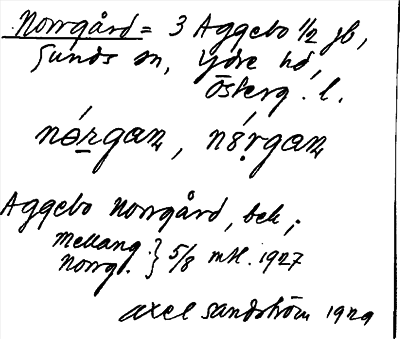 Norrgård = 3 Aggebo 1/2 jb,
Sunds sn, Ydre hd,
Österg. l.
nørgan, nørgan
Aggebo Norrgård, bek;
Mellang. } 5/8 mtl. 1927
Norrg.
Axel Sandström 1929